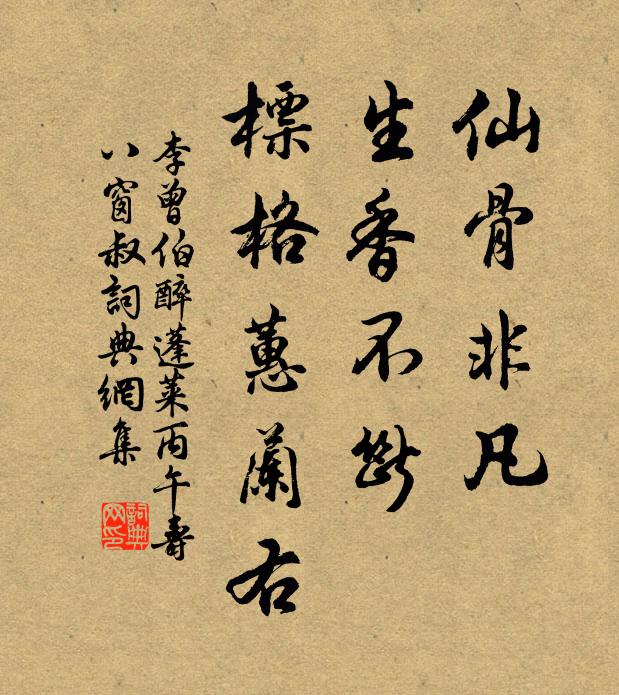 仙骨非凡
生香不断
標格蕙蘭右
李曾伯醉蓬萊丙午壽
八窗叔詞典網集
詞典網印